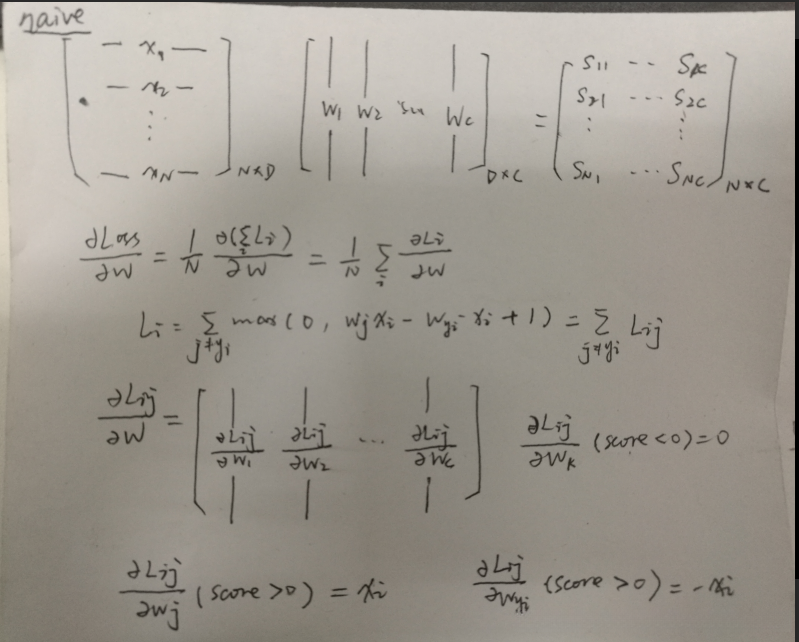 naive
[ — x₁ — ; — x₂ — ; ⋮ ; — x_N — ]_{N×D} [ W₁ W₂ ... W_C ]_{D×C} = [ S₁₁ ... S_{1C} ; S₂₁ ... S_{2C} ; ⋮ ⋮ ; S_{N1} ... S_{NC} ]_{N×C}
∂Loss/∂W = 1/N ∂(∑_i Li)/∂W = 1/N ∑_i ∂Li/∂W
Li = ∑_{j≠yi} max(0, wj xi − w_{yi} xi + 1) = ∑_{j≠yi} Lij
∂Lij/∂W = [ ∂Lij/∂W₁ ∂Lij/∂W₂ ... ∂Lij/∂W_C ] ∂Lij/∂W_k (score<0) = 0
∂Lij/∂wj (score>0) = xi ∂Lij/∂w_{yi} (score>0) = −xi